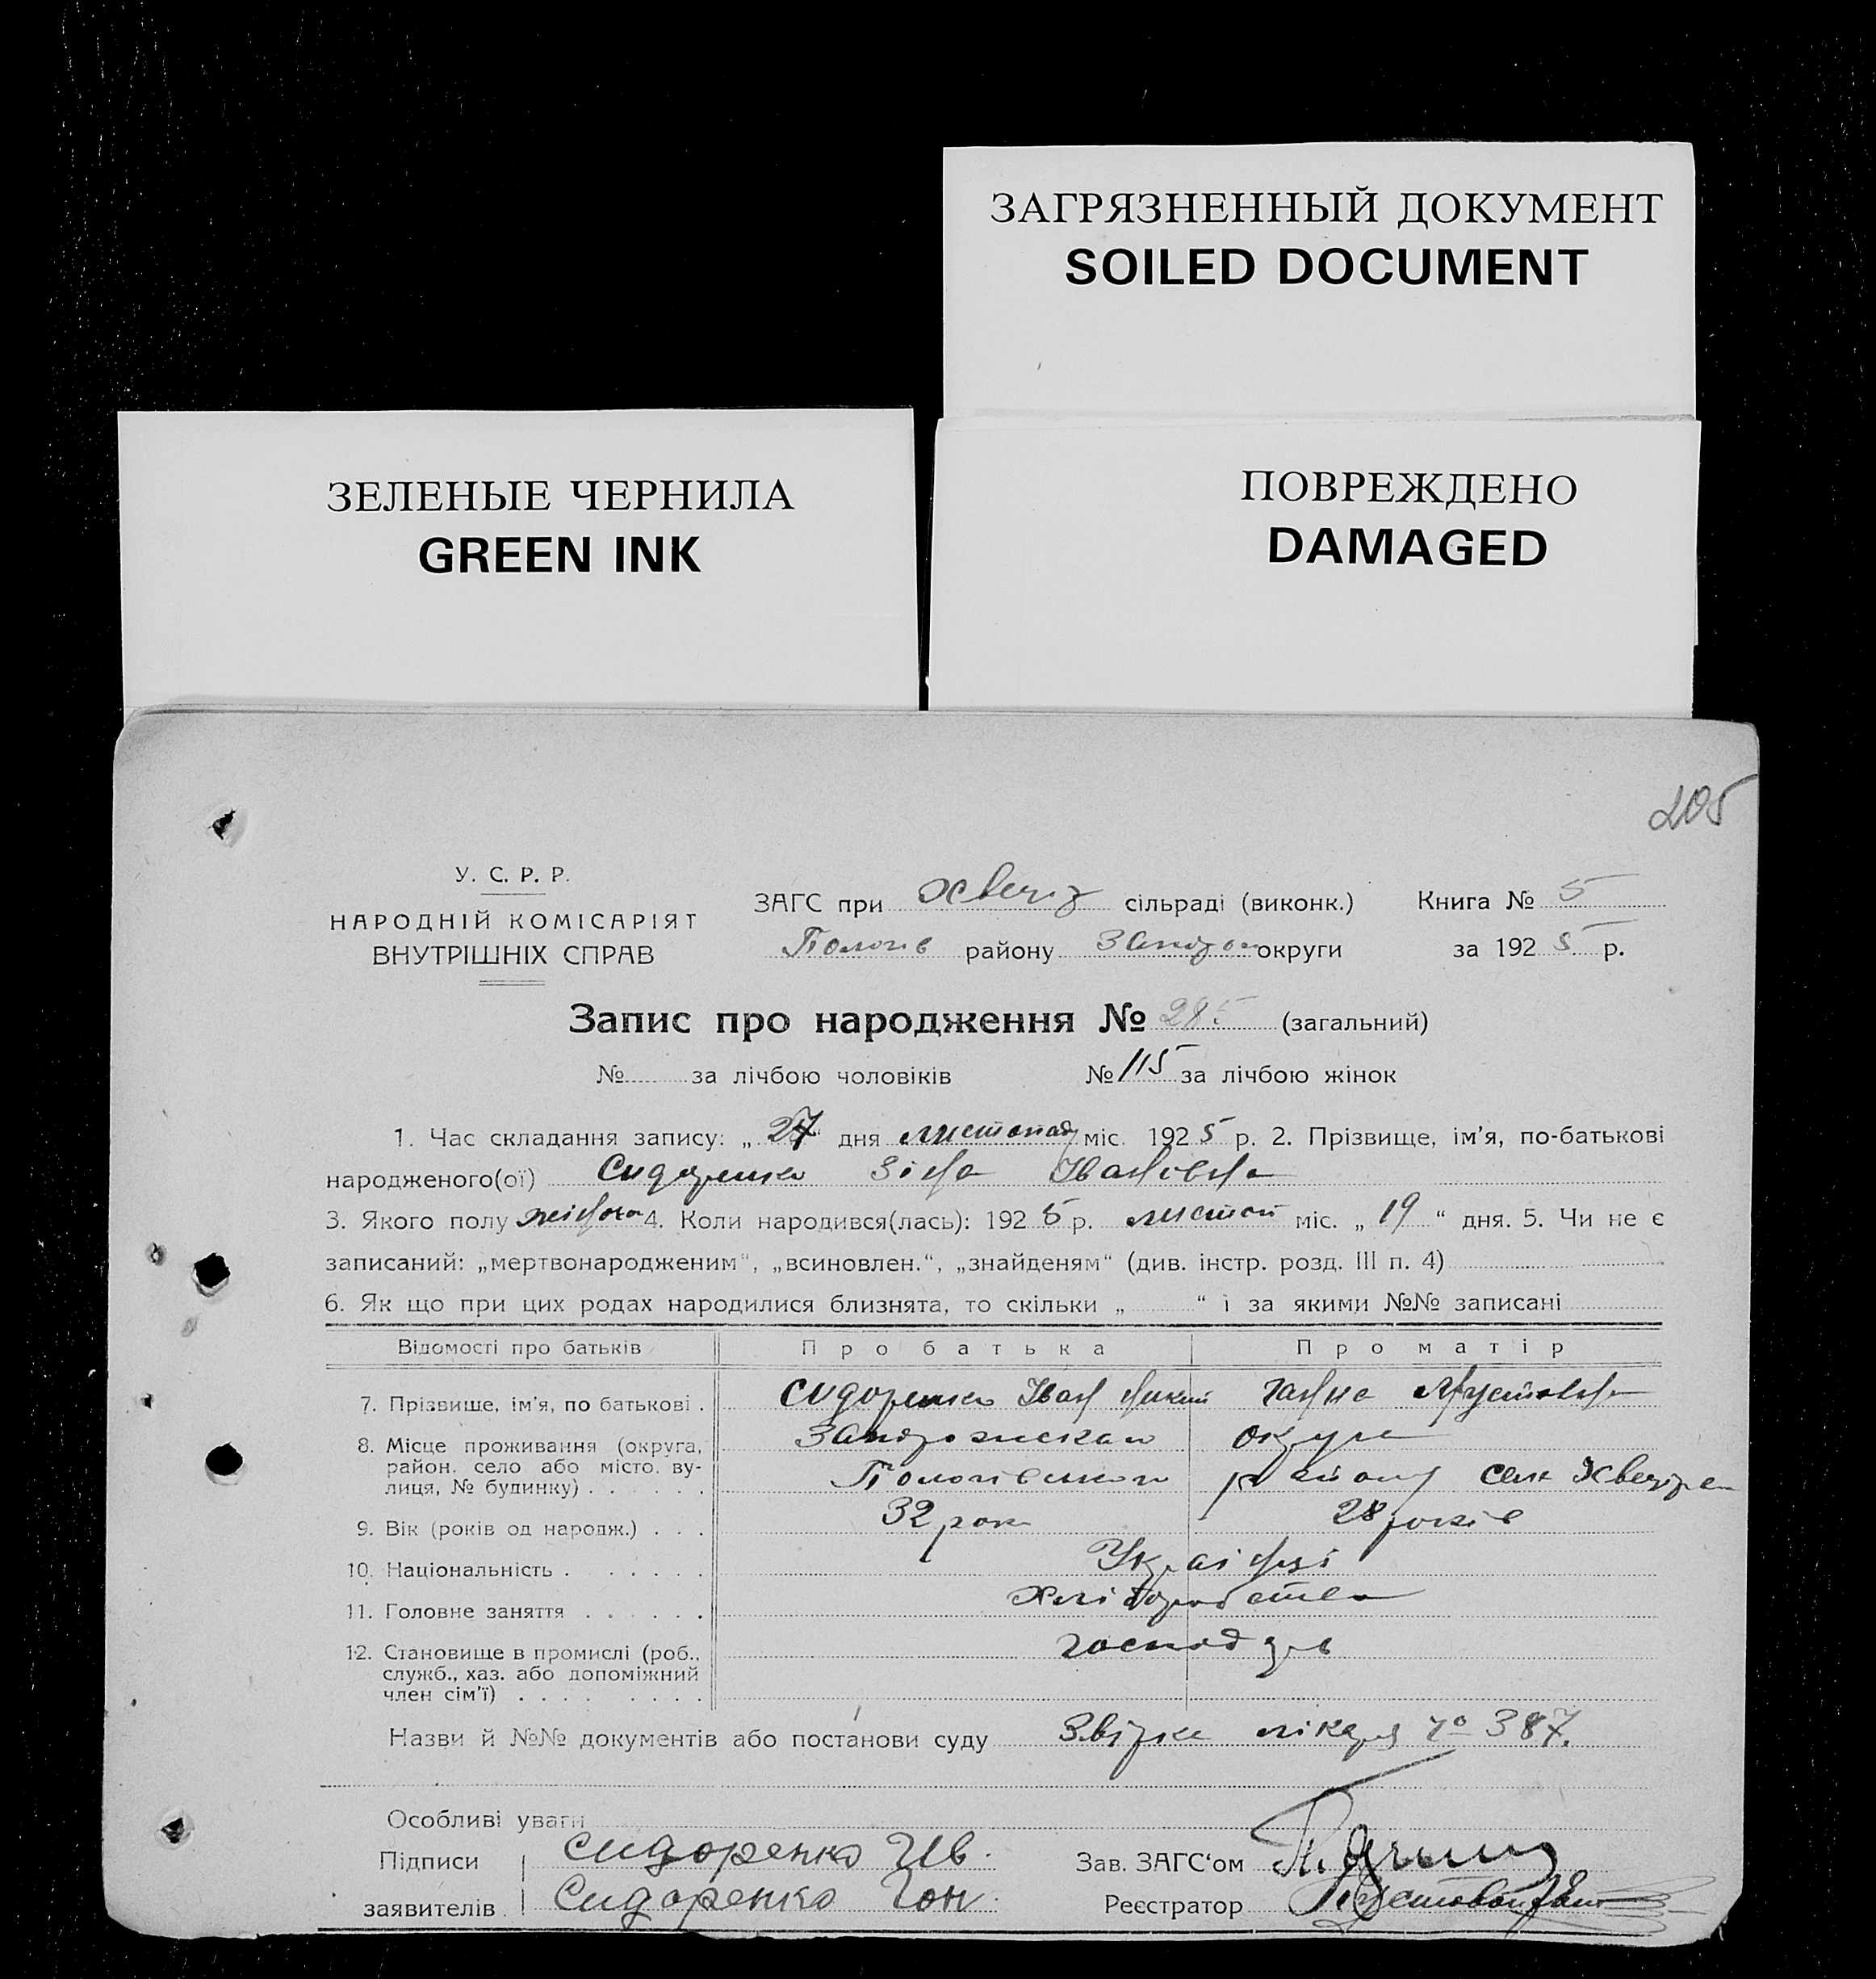 ЗАГРЯЗНЕННЫЙ ДОКУМЕНТ
SOILED DOCUMENT
ЗЕЛЕНЫЕ ЧЕРНИЛА
GREEN INK
ПОВРЕЖДЕНО
DAMAGED
205
У. С. Р. Р.
НАРОДНІЙ КОМІСАРІЯТ
ВНУТРІШНІХ СПРАВ
ЗАГС при сільраді (виконк.) Книга № 5
Пологів району Запоріз округи за 1925 р.
Запис про народження № 285 (загальний)
№ за лічбою чоловіків № 115 за лічбою жінок
1. Час складання запису: „ 27 дня листопад міс. 1925 р. 2. Прізвище, ім'я, по-батькові
народженого(ої) Сидоренко Зіна Івановна
3. Якого полу жіночо 4. Коли народився(лась): 1925 р. листоп міс. „ 19 “ дня. 5. Чи не є
записаний: „мертвонародженим“, „всиновлен.“, „знайденям“ (див. інстр. розд. III п. 4)
6. Як що при цих родах народилися близнята, то скільки „ “ і за якими №№ записані
Відомості про батьків Про батька Про матір
7. Прізвище, ім'я, по батькові . Сидоренко Іван Ганна
8. Місце проживання (округа, район, село або місто, вулиця, № будинку) Запорозская округа
Пологівського району село
9. Вік (років од народж.) . . . 32 роки 28 років
10. Національність . Українці
11. Головне заняття Хліборобство
12. Становище в промислі (роб., служб., хаз. або допоміжний член сім'ї) господарь
Назви й №№ документів або постанови суду Звірка лікаря № 387.
Особливі уваги
Підписи Сидоренко Ив. Зав. ЗАГС‘ом
заявителів Сидоренко Реєстратор